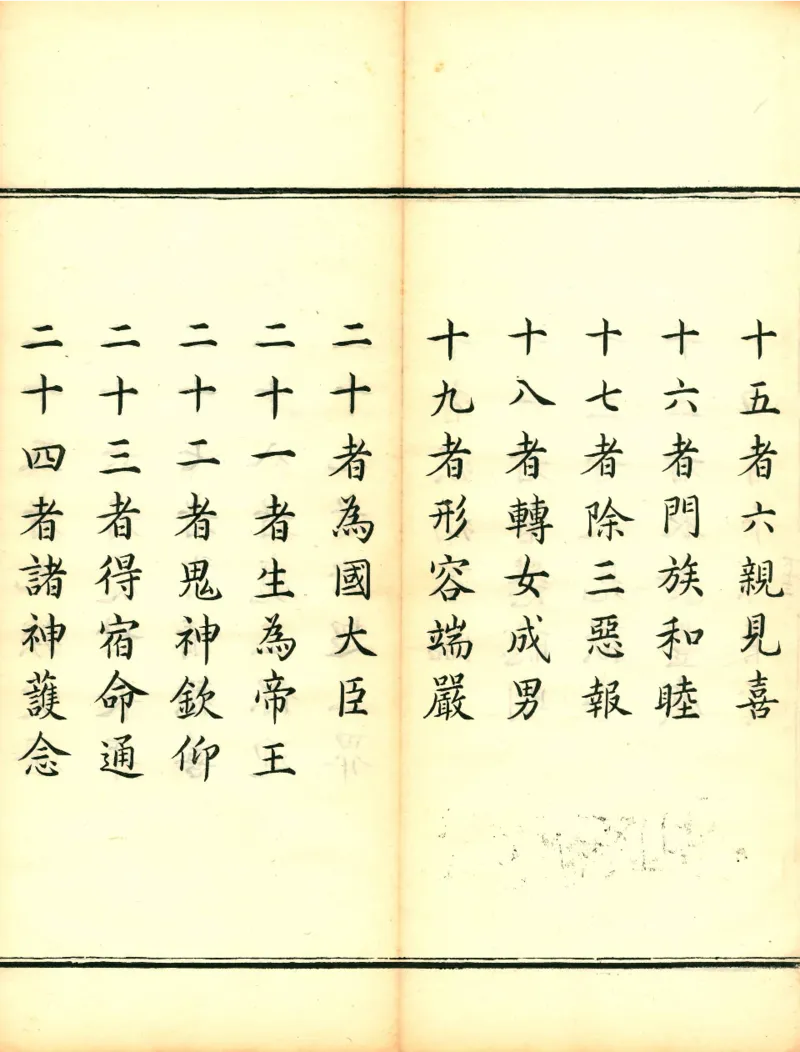 十五者六親見喜
十六者門族和睦
十七者除三惡報
十八者轉女成男
十九者形容端嚴
二十者為國大臣
二十一者生為帝王
二十二者鬼神欽仰
二十三者得宿命通
二十四者諸神護念